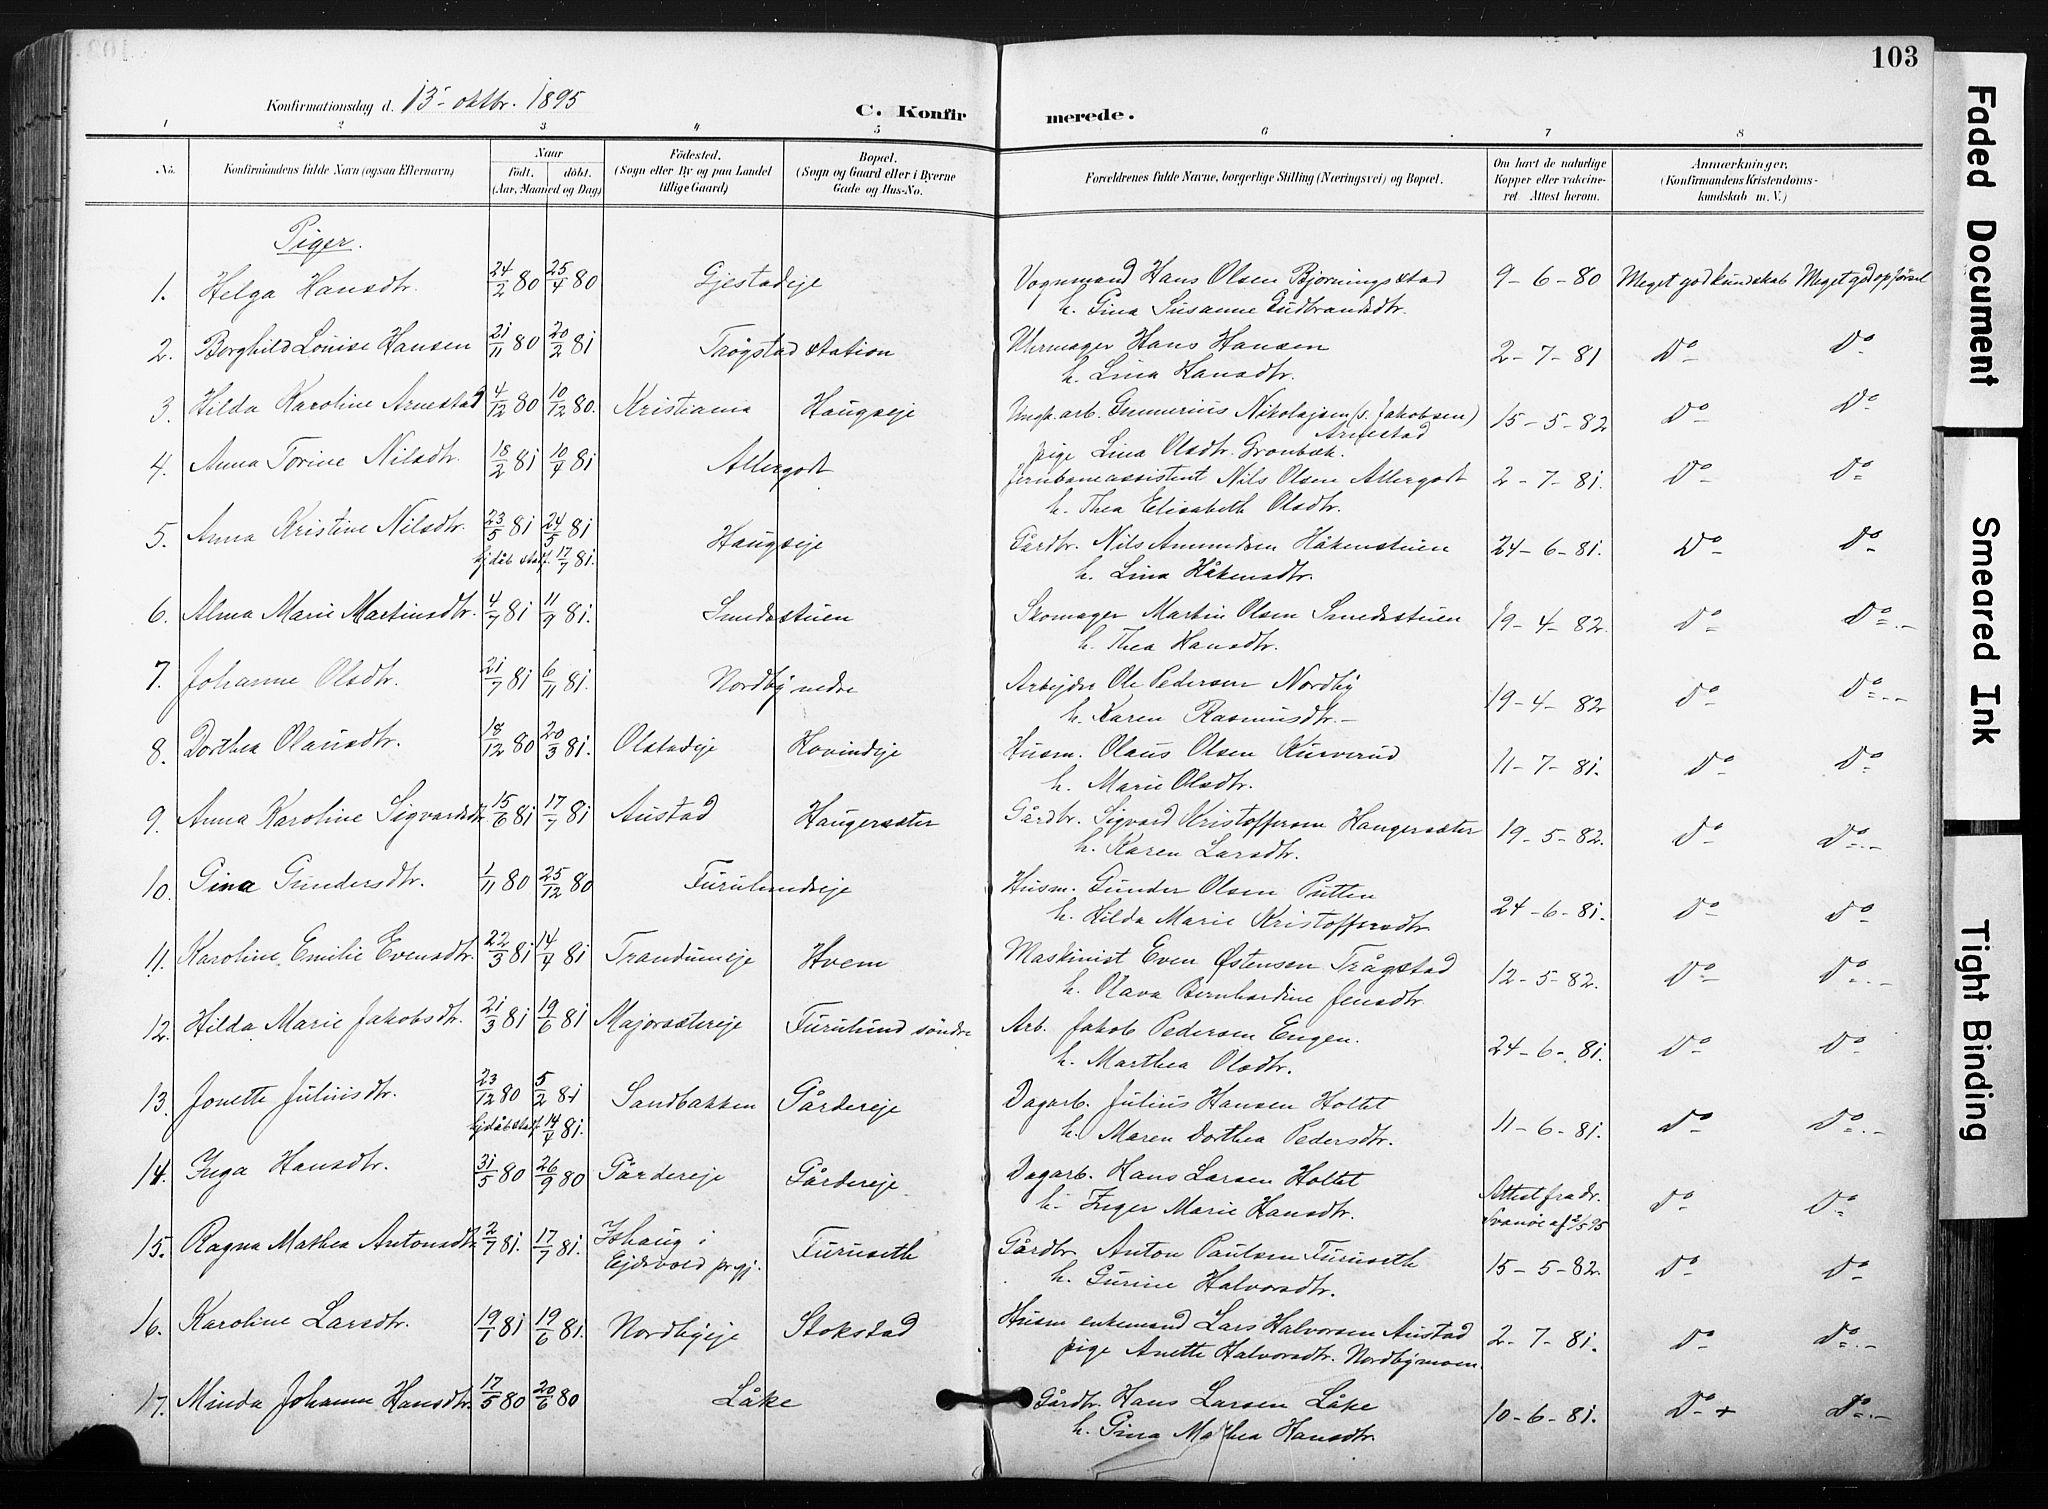 103
Konfirmationsdag d. 13. oktbr. 1895
C. Konfirmerede.
1 2 3 4 5 6 7 8
No.
Konfirmandens fulde Navn (ogsaa Efternavn)
Naar
født. døbt.
(Aar, Maaned og Dag)
Fødested.
(Sogn eller By og paa Landet
tillige Gaard)
Bopæl.
(Sogn og Gaard eller i Byerne
Gade og Hus-No.
Forældrenes fulde Navne, borgerlige Stilling (Næringsvei) og Bopæl.
Om havt de naturlige
Kopper eller vakcine-
ret. Attest herom.
Anmærkninger.
(Konfirmandens Kristendoms-
kundskab m. V.)
Piger.
1. Helga Hansdtr. 24/2 80 25/4 80 Gjestadeje Vognmand Hans Olsen Bjørningsstad 9-6-80 Meget god kundskab Meget god opførsel
h. Gina Susanne Gudbrandsdtr.
2. Borghild Louise Hansen 21/11 80 20/2 81 Trøgstad station Uhrmager Hans Hansen 2-7-81 Do Do
h. Lina Hansdtr.
3. Hilda Karoline Arnestad 4/12 80 10/12 80. Kristiania Haugseje Ungk. arb. Gunnerius Nikolajsen (s. Jakobsen) 15-5-82 Do Do
Arnestad
pige Lina Olsdtr. Grønbæk.
4. Anna Torine Nilsdtr. 18/2 81 10/4 81 Allergodt Jernbaneassistent Nils Olsen Allergodt 2-7-81. Do Do
h. Thea Elisabeth Olsdtr.
5. Anna Kristine Nilsdtr. 23/5 81 24/5 81 Haugseje Gårdbr. Nils Amundsen Håkenstuen 24-6-81. Do Do
hjdåb staf. 17/7 81. h. Lina Håkensdtr.
6. Alma Marie Martinsdtr. 4/7 81 11/9 81. Smedsstuen Skomager Martin Olsen Smedsstuen 19-4-82. Do Do
h. Thea Hansdtr.
7. Johanne Olsdtr. 21/7 81 6/11 81. Nordby nedre Arbejder Ole Pedersen Nordby 19-4-82 Do Do
h. Karen Rasmusdtr.
8. Dorthea Olausdtr. 18/12 80 20/3 81. Olstadeje Hovindeje Husm. Olaus Olsen Kurverud 11-7-81. Do Do
h. Marie Olsdtr.
9. Anna Karoline Sigvardsdtr. 15/6 81 17/7 81 Austad Haugersæter Gårdbr. Sigvard Kristoffersen Haugersæter 19-5-82. Do Do
h. Karen Larsdtr.
10. Gina Gundersdtr. 1/11 80 25/12 80 Furulundseje Husm. Gunder Olsen Putten 24-6-81. Do Do
h. Hilda Marie Kristoffersdtr
11. Karoline Emilie Evensdtr. 22/3 81 14/4 81 Trandumeje Hvem Maskinist Even Østensen Trågstad 12-5-82. Do Do
h. Olava Bernhardine Jensdtr.
12. Hilda Marie Jakobsdtr. 21/3 81 19/6 81 Majorsætereje Furulund søndre Arb. Jakob Pedersen Engen. 24-6-81. Do Do
h. Marthea Olsdtr.
13. Jonette Juliusdtr. 23/12 80 5/2 81 Sandbakken Gårdereje Dagarb. Julius Hansen Holtet 11-6-81. Do Do
hjdåb staf. 14/4 81. h. Maren Dorthea Pedersdtr.
14. Inga Hansdtr. 31/5 80 26/9 80 Gårdereje Gårdereje Dagarb. Hans Larsen Holtet Attest fra dr. Do Do
h. Inger Marie Hansdtr. Svanøe af 2/5 95
15. Ragna Mathea Antonsdtr. 2/7 81. 17/7 81. Ishaug i Furuseth Gårdbr. Anton Paulsen Furuseth 15-5-82. Do Do
Ejdsvold prgj. h. Gurine Halvorsdtr.
16. Karoline Larsdtr. 19/1 81 19/6 81. Nordbyeje Stokstad Husm enkemand Lars Halvorsen Austad 2-7-81. Do Do
pige Anette Halvorsdtr. Nordbymoen.
17. Minda Johanne Hansdtr. 17/5 80 20/6 80 Låke Gårdbr. Hans Larsen Låke 10-6-81. Do + Do
h. Gina Mathea Hansdtr.
Faded Document
Smeared Ink
Tight Binding